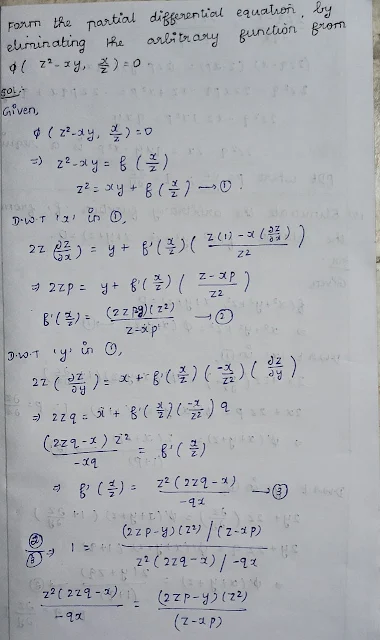 Form the partial differential equation, by
eliminating the arbitrary function from
φ( z²-xy, x/z )=0
SOL:-
Given,
φ ( z²-xy, x/z )=0
⇒ z²-xy = f ( x/z )
z² = xy + f ( x/z ) → ①
D.W.T 'x' in ①,
2z (∂z/∂x) = y + f'(x/z) ( z(1) - x(∂z/∂x) / z² )
⇒ 2zp = y + f'(x/z) ( z-xp / z² )
f'(x/z) = (2zp-y)(z²) / z-xp → ②
D.W.T 'y' in ①,
2z ( ∂z/∂y ) = x + f'(x/z) ( -x/z² ) ( ∂z/∂y )
⇒ 2zq = x + f'(x/z) (-x/z²) q
(2zq-x) z² / -xq = f' (x/z)
⇒ f' (x/z) = z² (2zq-x) / -qx → ③
②/③ ⇒ 1 = (2zp-y)(z²) / (z-xp) / z² (2zq-x) / -qx
z² (2zq-x) / -qx = (2zp-y)(z²) / (z-xp)